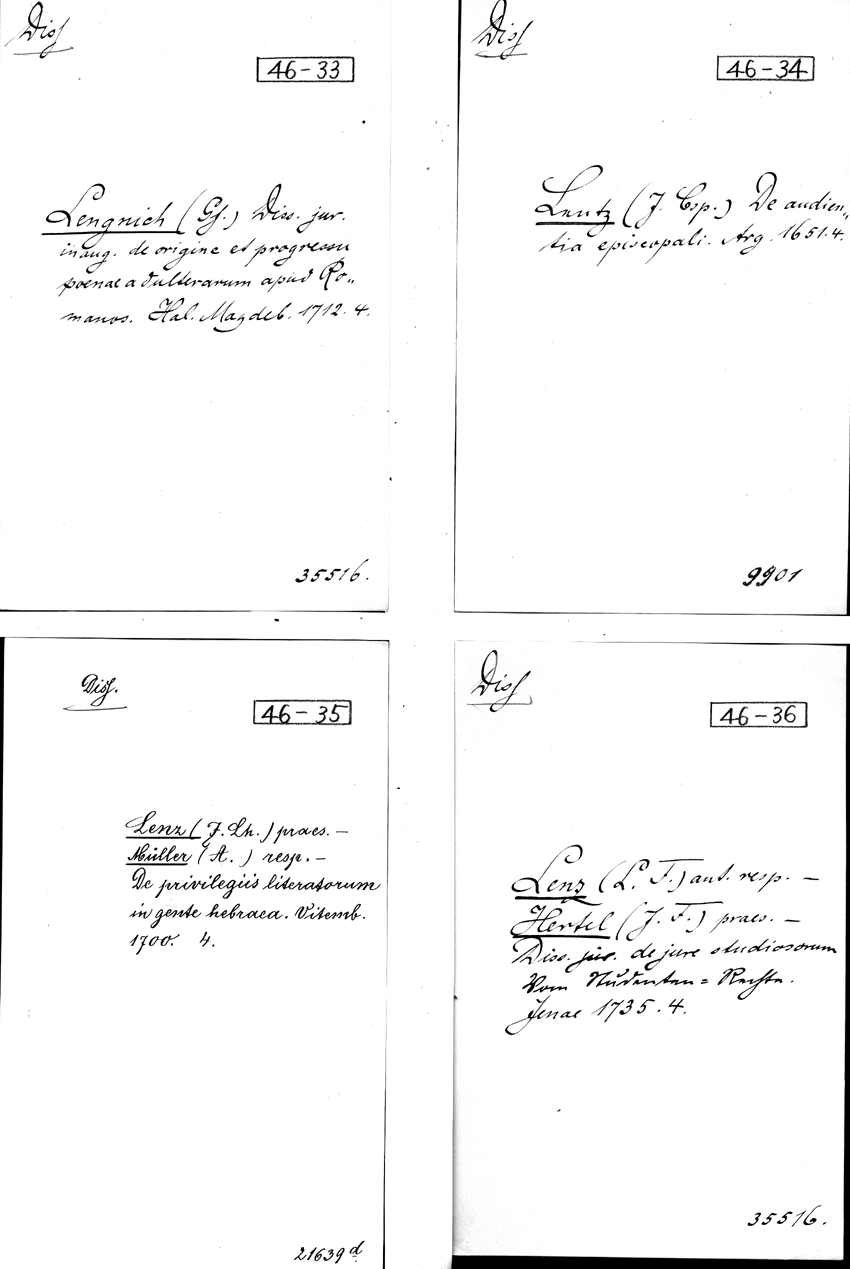 Diss
46-33
Lengnich (Gf.) Diss. jur.
inaug. de origine et progressu
poenae adulterarum apud Ro„
manos. Hal. Magdeb. 1712. 4.
35516.
Diss
46-34
Lentz (J. Csp.) De audien„
tia episcopali. Arg. 1651. 4.
9901
Diss.
46-35
Lenz (J. Lh.) praes. —
Müller (A.) resp. —
De privilegiis literatorum
in gente hebraea. Vitemb.
1700. 4.
21639 d.
Diss
46-36
Lenz (L. F.) aut. resp. —
Hertel (J. F.) praes. —
Diss. jur. de jure studiosorum
Vom Studenten = Rechte.
Jenae 1735. 4.
35516.